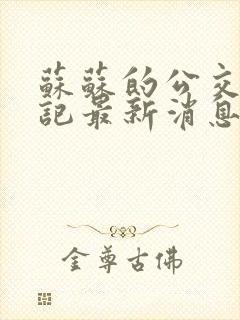 蘇蘇的公交
記最新消息
金尊古佛